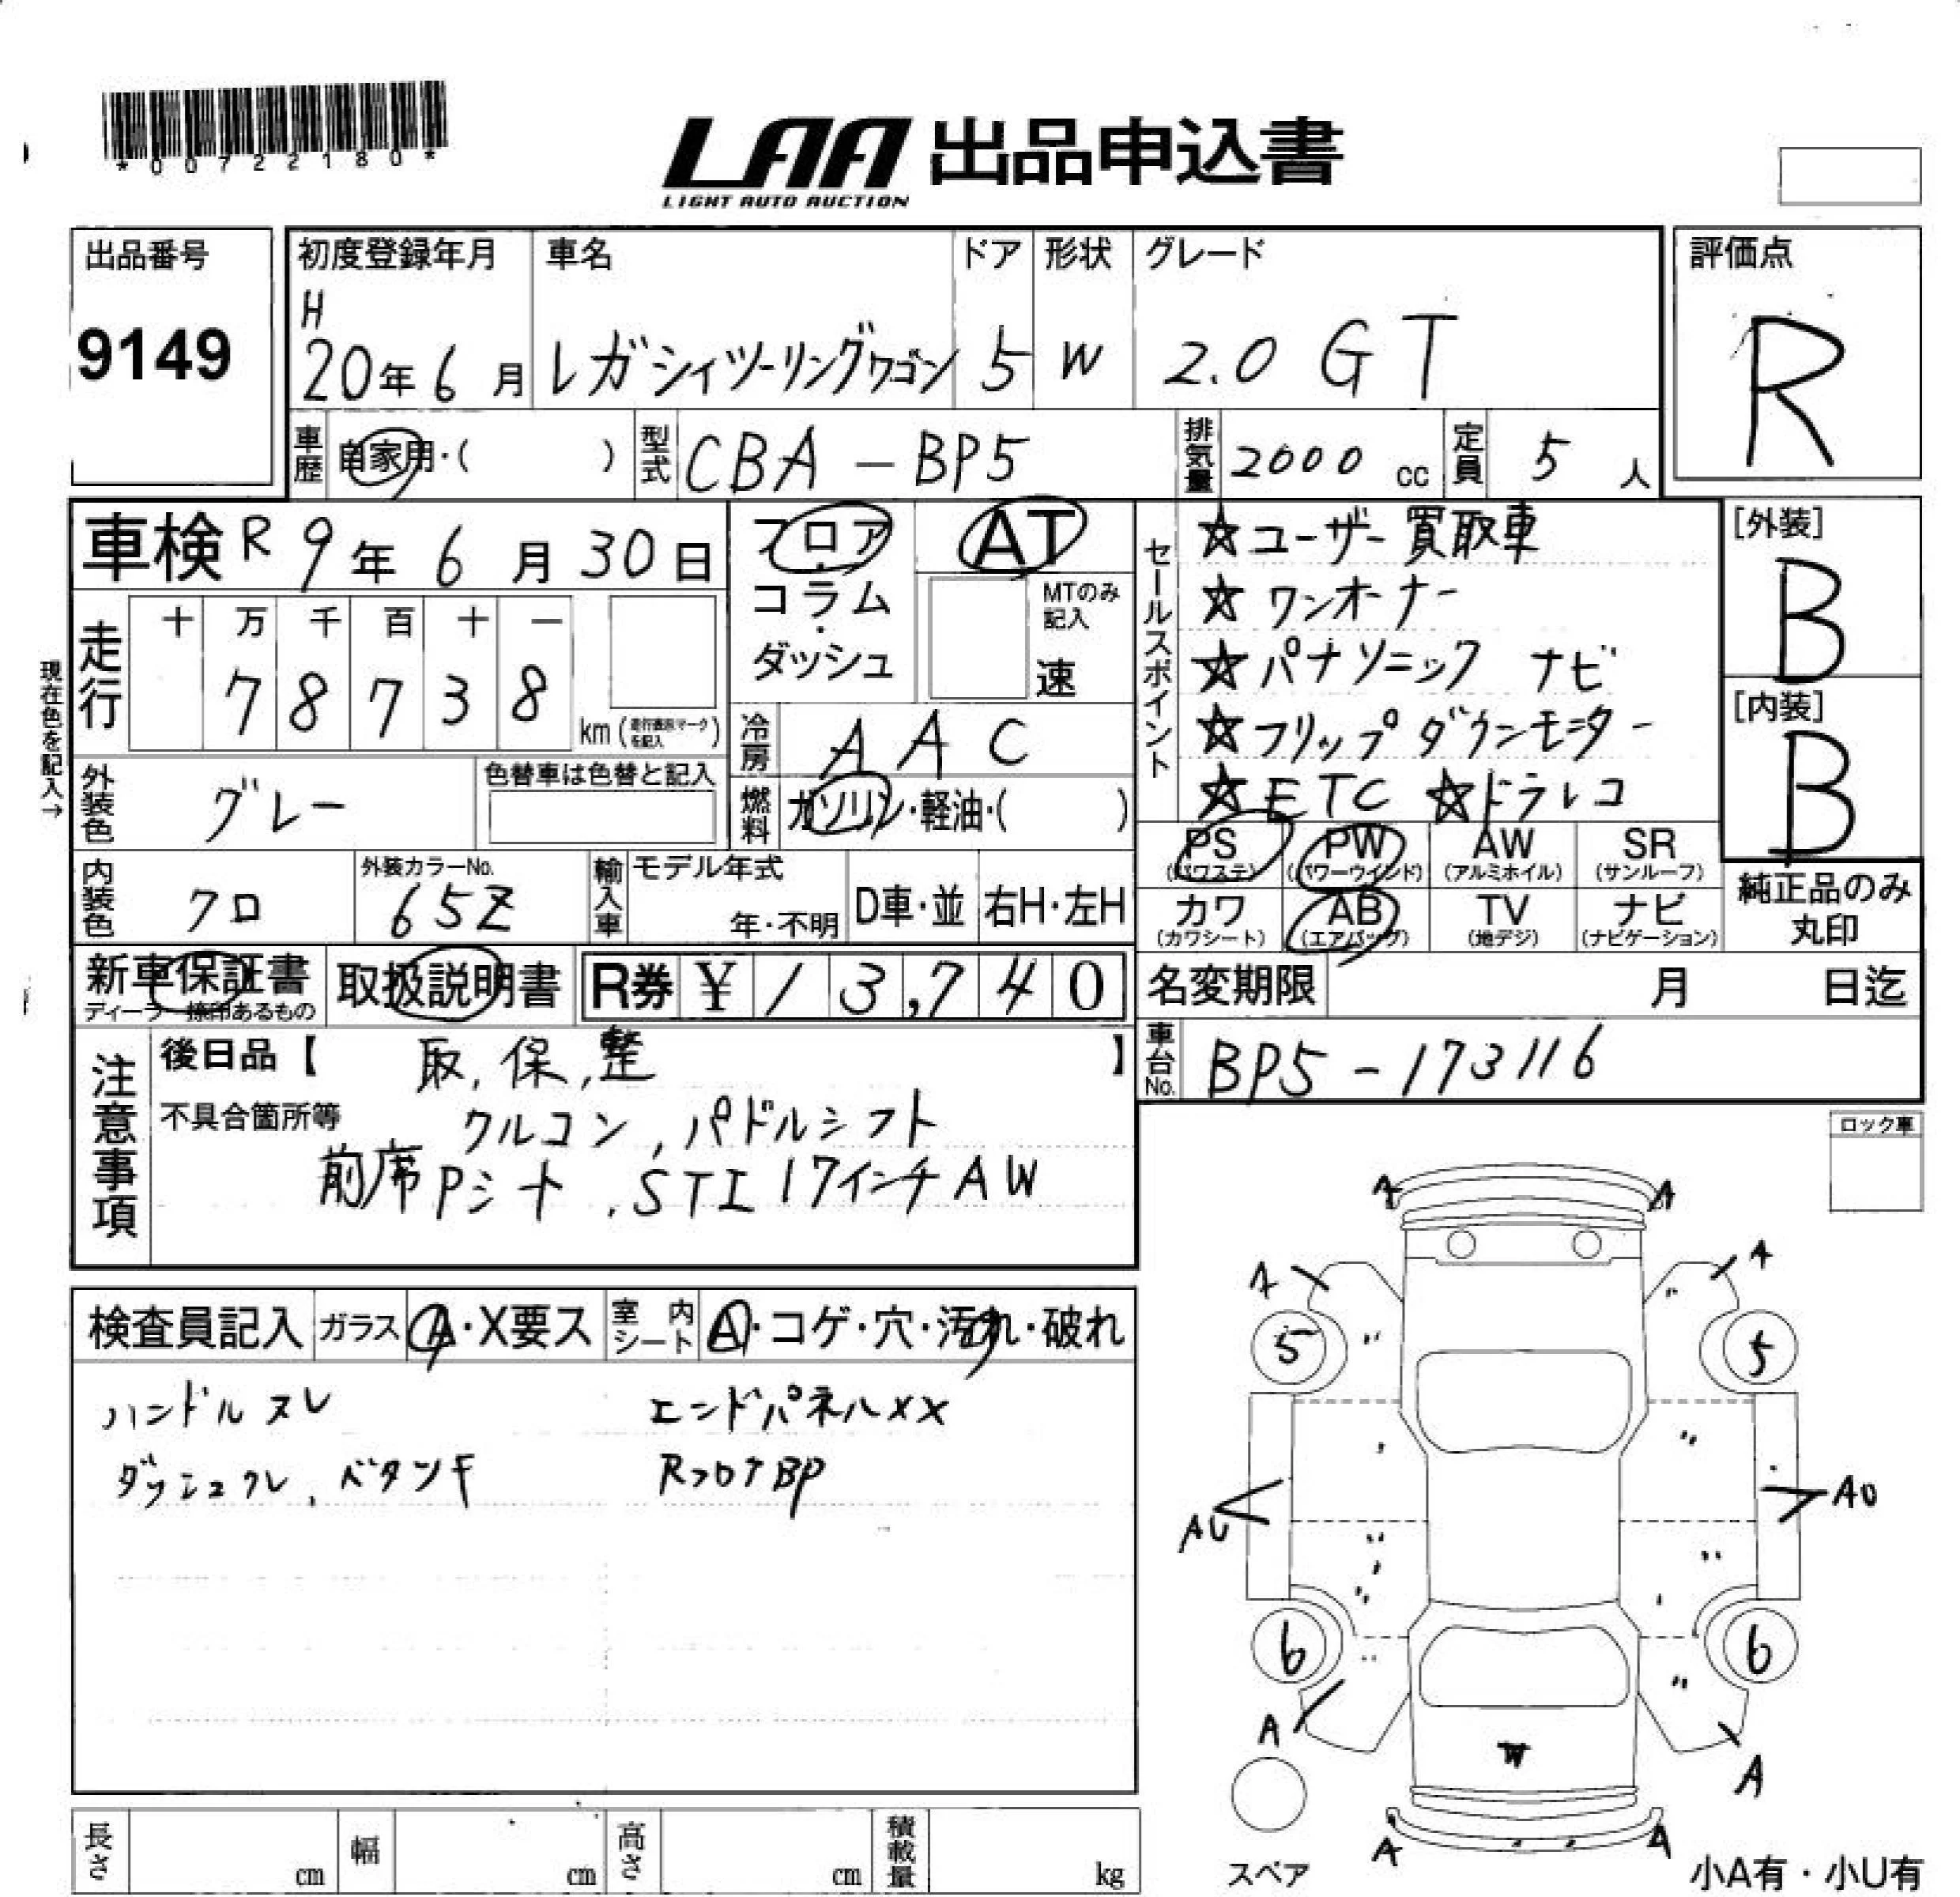 *00722180*
LAA 出品申込書
LIGHT AUTO AUCTION
出品番号
9149
初度登録年月 車名 ドア 形状 グレード
H
20年6月 レガシィツーリングワゴン 5 W 2.0 GT
評価点
R
車歴 自家用・( ) 型式 CBA-BP5 排気量 2000 cc 定員 5 人
車検 R 9年 6月 30日
フロア・コラム・ダッシュ
AT
MTのみ記入
速
現在色を記入→
走行
十 万 千 百 十 一
7 8 7 3 8
km(走行表示マークを記入)
冷房 AAC
外装色 グレー 色替車は色替と記入
燃料 ガソリン・軽油・( )
内装色 クロ 外装カラーNo. 65Z
輸入車 モデル年式 年・不明 D車・並 右H・左H
セールスポイント
☆ユーザー買取車
☆ワンオーナー
☆パナソニック ナビ
☆フリップダウンモニター
☆ETC ☆ドラレコ
[外装]
B
[内装]
B
PS (パワステ) PW (パワーウインド) AW (アルミホイル) SR (サンルーフ)
カワ (カワシート) AB (エアバッグ) TV (地デジ) ナビ (ナビゲーション)
純正品のみ丸印
新車保証書 取扱説明書 R券 ¥ 13,740
ディーラー捺印あるもの
名変期限 月 日迄
車台No. BP5-173116
注意事項
後日品【 取,保,整 】
不具合箇所等 クルコン,パドルシフト
前席Pシート,STI 17インチAW
ロック車
検査員記入 ガラス A・X要ス 室内シート A・コゲ・穴・汚れ・破れ
ハンドルスレ エンドパネルXX
ダッシュクレ,ベタツキ RフロアBP
A A
A A
5 5
AU AU
6 6
A A
W
A A
スペア
小A有・小U有
長さ cm 幅 cm 高さ cm 積載量 kg